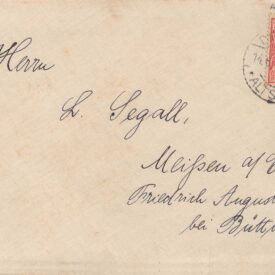 Herrn
L. Segall,
Meißen a/
Friedrich August
bei Büttn